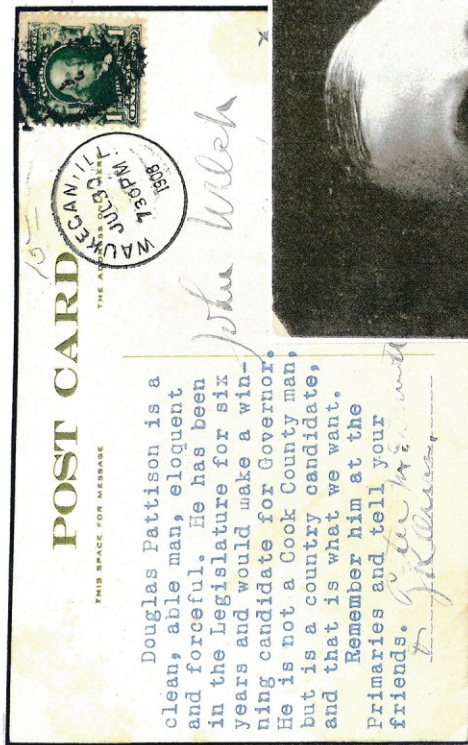 POST CARD
THIS SPACE FOR MESSAGE
THE ADDRESS ONLY HERE
15-
WAUKEGAN, ILL.
JUL 30
730PM
1908
John Welch
Douglas Pattison is a
clean, able man, eloquent
and forceful. He has been
in the Legislature for six
years and would make a win-
ning candidate for Governor.
He is not a Cook County man,
but is a country candidate,
and that is what we want.
Remember him at the
Primaries and tell your
friends.